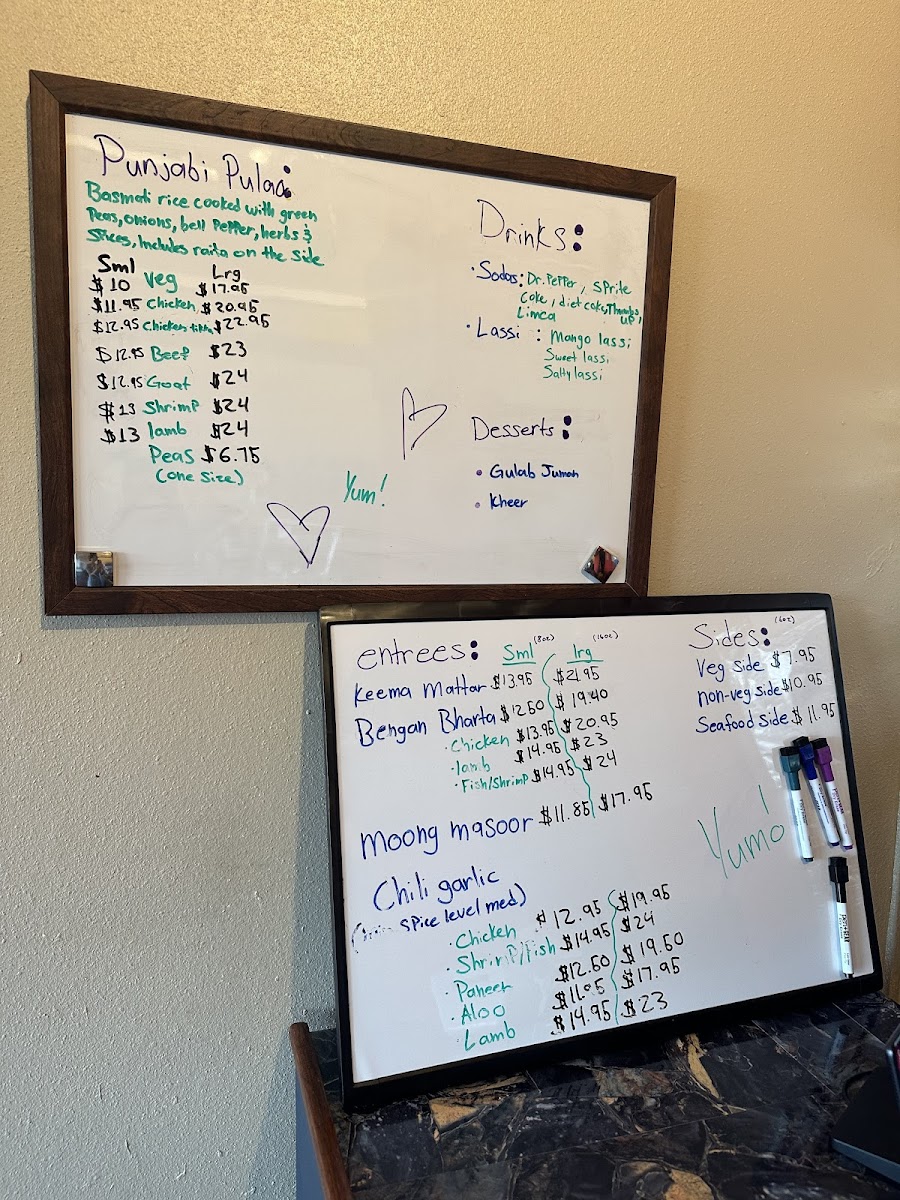 Punjabi Pulao:
Basmati rice cooked with green
Peas, onions, bell Pepper, herbs &
Spices, Includes raita on the side
Sml Lrg
$10 Veg $17.95
$11.95 Chicken $20.95
$12.95 Chicken tikka $22.95
$12.95 Beef $23
$12.95 Goat $24
$13 Shrimp $24
$13 lamb $24
Peas $6.75
(one size)
Yum!
Drinks:
• Sodas: Dr. Pepper, Sprite
Coke, diet coke, Thumbs
Limca UP!
• Lassi : Mango lassi
Sweet lassi
Salty lassi
Desserts:
• Gulab Juman
• Kheer
entrees: Sml (8oz) lrg (16oz)
Keema Mattar $13.95 $21.95
Bengan Bharta $12.50 $19.40
• Chicken $13.95 $20.95
• lamb $14.95 $23
• Fish/Shrimp $14.95 $24
Moong masoor $11.85 $17.95
Chili garlic
spice level med)
• Chicken $12.95 $19.95
• Shrimp/Fish $14.95 $24
• Paneer $12.50 $19.50
• Aloo $17.95
• Lamb $14.95 $23
Sides: (6oz)
Veg side $7.95
non-veg side $10.95
Seafood side $11.95
Yum!